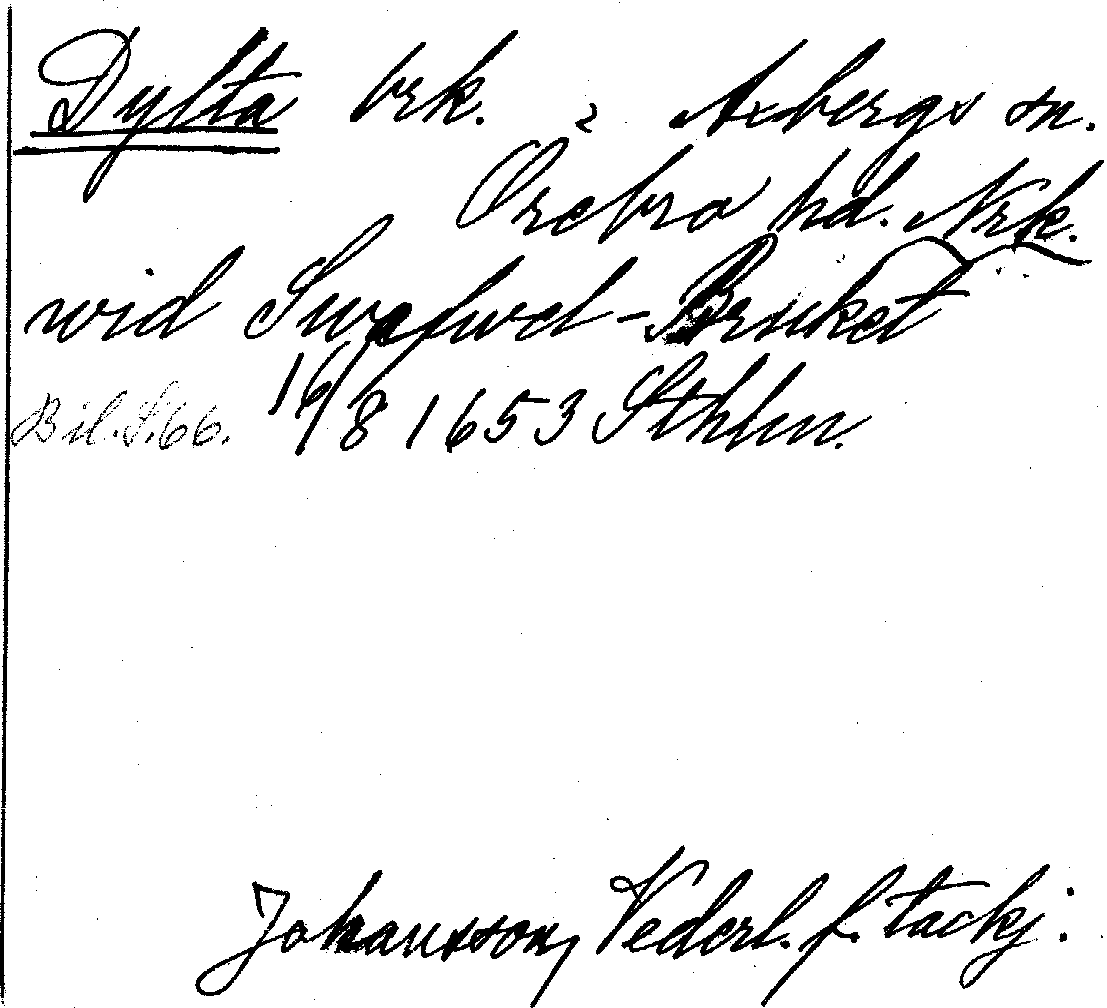 Dylta brk. Axbergs sn.
Örebro hd. Nrk.
wid Swafwel-Bruket
Bil. S. 66. 16/8 1653 Sthlm.
Johansson, Vederl. f. tackj.